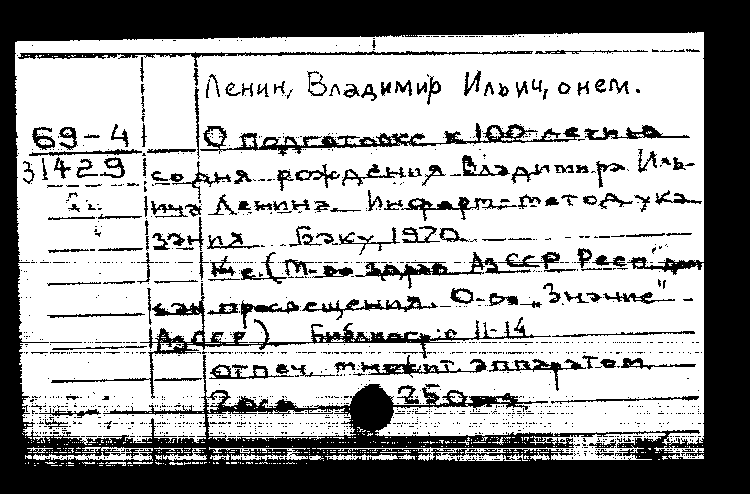 Ленин, Владимир Ильич, о нем.
69-4
О подготовке к 100-летию
31429
со дня рождения Владимира Иль-
ича Ленина. Информ.-метод. ука-
зания Баку, 1970
(М-во здрав АзССР Респ. дом
сан. просвещения. О-во „Знание" -
АзССР) Библиогр: с 11-14.
отпеч. множит. аппаратом.
250 экз